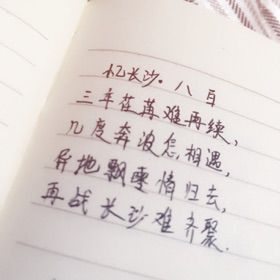 忆长沙·八百
三年荏苒难再续、
几度奔波怎相遇,
异地飘零情归去,
再战长沙难齐聚.